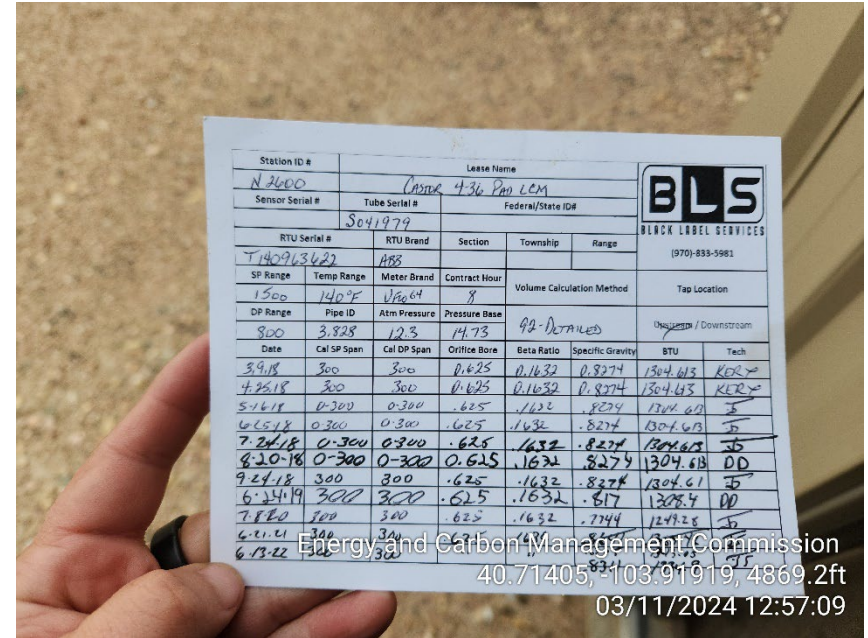 Station ID # Lease Name
N 2600 CASTOR 4-36 PAD LCM
BLS
BLACK LABEL SERVICES
(970)-833-5981
Sensor Serial # Tube Serial # Federal/State ID#
S041979
RTU Serial # RTU Brand Section Township Range
T140963622 ABB
SP Range Temp Range Meter Brand Contract Hour Volume Calculation Method Tap Location
1500 140°F 8
DP Range Pipe ID Atm Pressure Pressure Base
800 3.828 12.3 14.73 92-DETAILED Upstream / Downstream
Date Cal SP Span Cal DP Span Orifice Bore Beta Ratio Specific Gravity BTU Tech
3.9.18 300 300 0.625 0.1632 0.8274 1304.613 KERY
4.25.18 300 300 0.625 0.1632 0.8274 1304.613 KERY
5-16-18 0-300 0-300 .625 .1632 .8274 1304.613
6-25-18 0-300 0-300 .625 .1632 .8274 1304.613
7-24-18 0-300 0-300 .625 .1632 .8274 1304.613
8-20-18 0-300 0-300 0.625 .1632 .8274 1304.613 DD
9-24-18 300 300 .625 .1632 .8274 1304.61
6-24-19 300 300 .625 .1632 .817 1308.4 DD
7.8.20 300 300 .625 .1632 .7744 1249.28
6-21-21 300
6-13-22 300
Energy and Carbon Management Commission
40.71405, -103.91919, 4869.2ft
03/11/2024 12:57:09